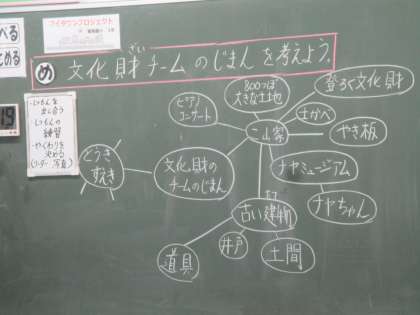 マイタウンプロジェクト
べる
とめる
め
ざい
文化財チームのじまんを考えよう。
しつもんを
出し合う
しつもんの
練習
やくわりを
決める
(リーダー、写真)
19
ピアノ
コンサート
800つぼ
大きな土地
登ろく文化財
土かべ
やき板
二山家
ナヤミュージアム
ナヤちゃん
とうき
すえき
文化財の
チームのじまん
古い建物
道具
井戸
土間